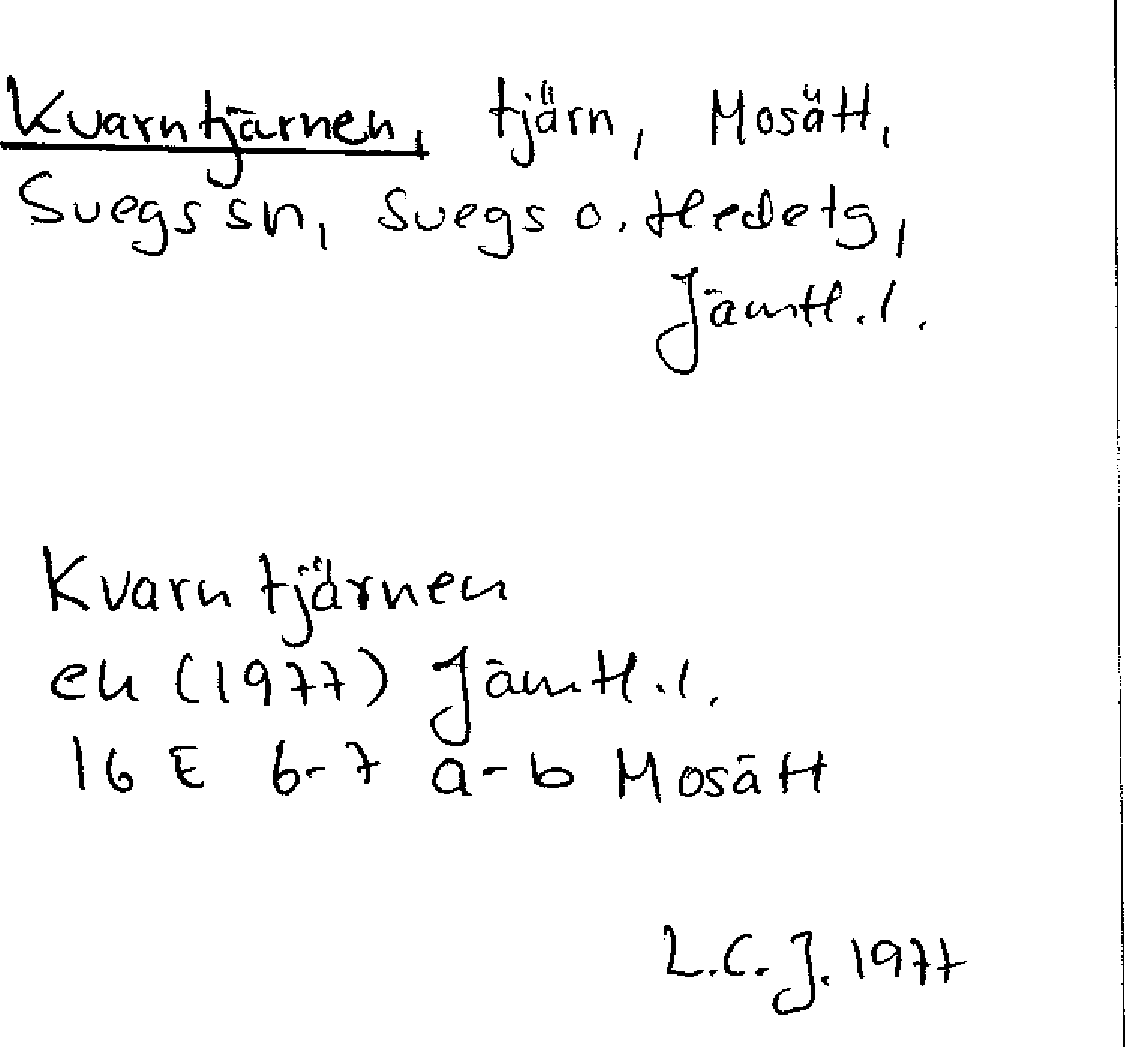 Kvarntjärnen, tjärn, Mosätt,
Svegs sn, Svegs o. Hedetg,
Jämtl.l.
Kvarntjärnen
ek (1977) Jämtl.l.
16 E 6-7 a-b Mosätt
L.C.J. 1977